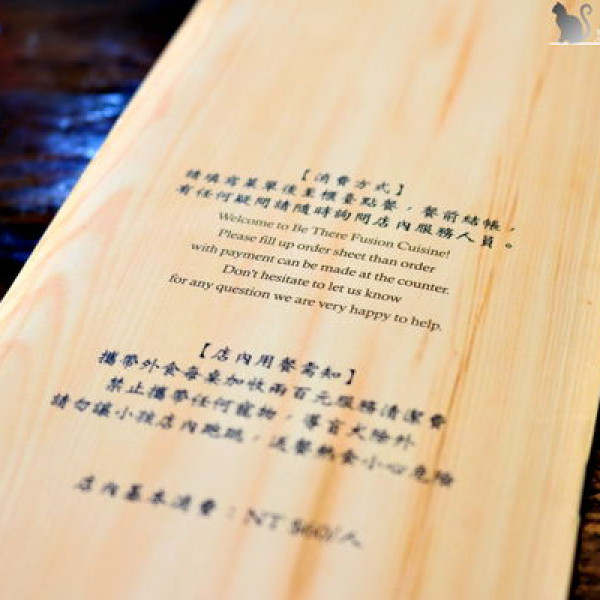 【消費方式】
請填寫菜單後至櫃臺點餐，餐前結帳，
有任何疑問請隨時詢問店內服務人員。
Welcome to Be There Fusion Cuisine!
Please fill up order sheet than order
with payment can be made at the counter.
Don't hesitate to let us know
for any question we are very happy to help.
【店內用餐需知】
攜帶外食每桌加收兩百元服務清潔費
禁止攜帶任何寵物，導盲犬除外
請勿讓小孩店內跑跳，送餐熱食小心危險
店內基本消費：NT $60/人